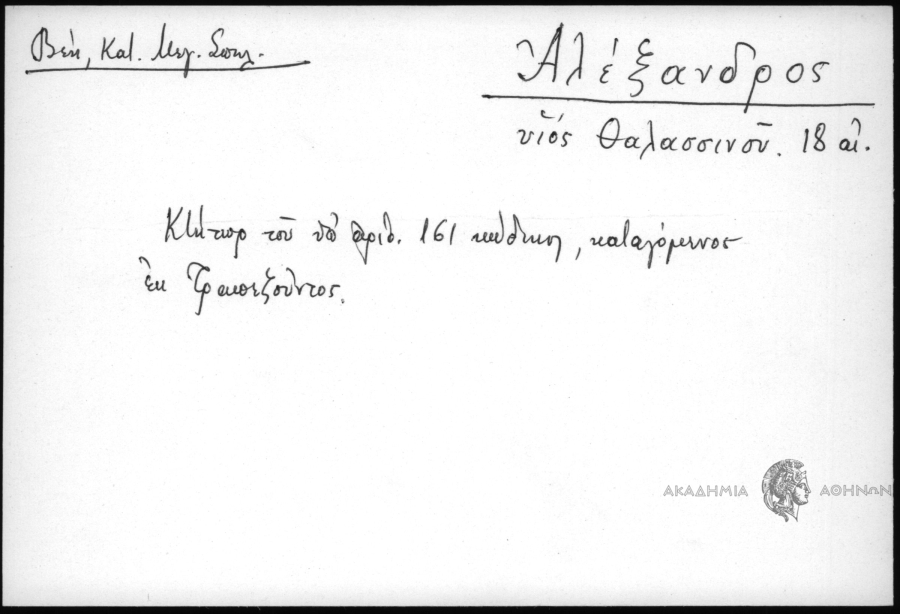 Βέη, Κατ. Μεγ. Σπηλ.
Ἀλέξανδρος
υἱός Θαλασσινοῦ. 18 αἰ.
Κτήτωρ τοῦ ὑπ' ἀριθ. 161 κώδικος, καταγόμενος
ἐκ Τραπεζοῦντος.
ΑΚΑΔΗΜΙΑ ΑΘΗΝΩΝ